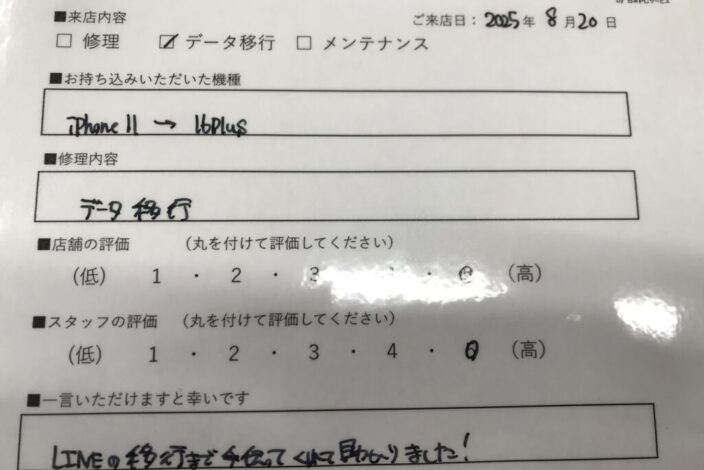 ■来店内容
ご来店日：2025年 8月20日
□ 修理 ☑ データ移行 □ メンテナンス
■お持ち込みいただいた機種
iPhone 11 → 16Plus
■修理内容
データ移行
■店舗の評価 （丸を付けて評価してください）
（低） 1 ・ 2 ・ 3 （高）
■スタッフの評価 （丸を付けて評価してください）
（低） 1 ・ 2 ・ 3 ・ 4 ・ 5 （高）
■一言いただけますと幸いです
LINEの移行まで手伝ってくれて助かりました！